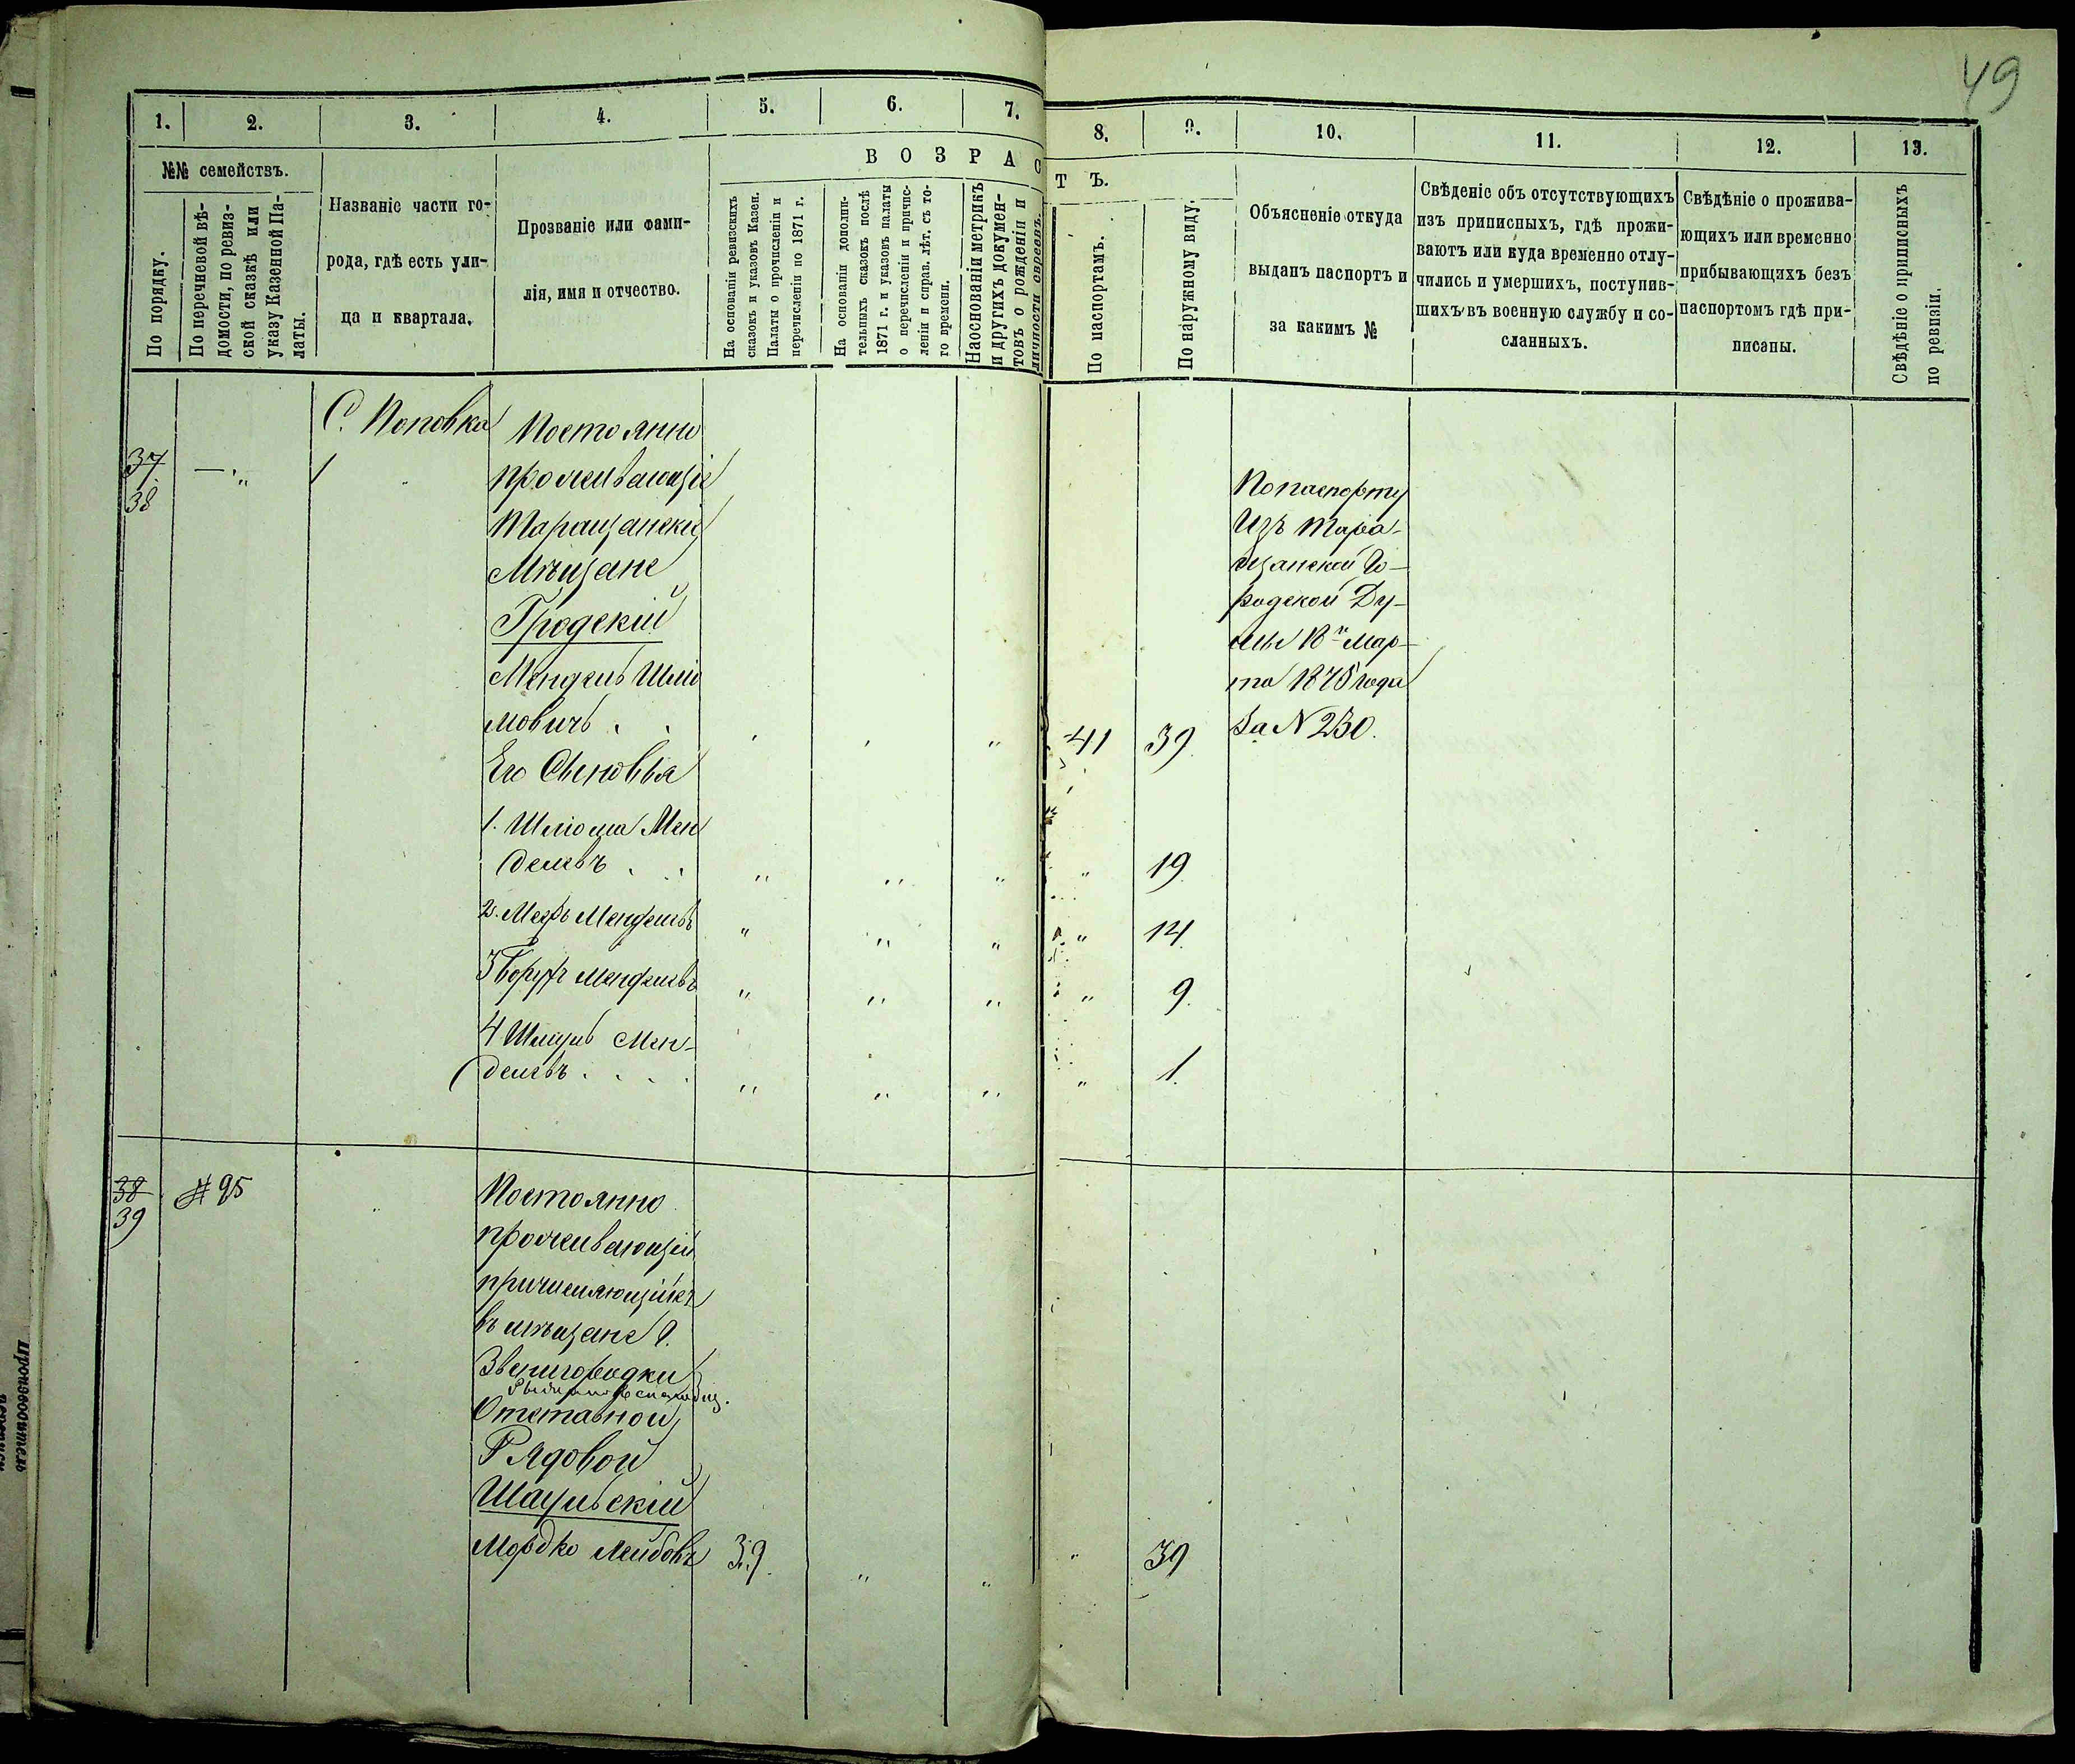 49
1. 2. 3. 4. 5. 6. 7. 8. 9. 10. 11. 12. 13.
№№ семействъ.
По порядку.
По перечневой вѣ-
домости, по ревиз-
ской сказкѣ или
указу Казенной Па-
латы.
Названіе части го-
рода, гдѣ есть ули-
ца и квартала.
Прозваніе или фами-
лія, имя и отчество.
ВОЗРАСТЪ.
На основаніи ревизскихъ
сказокъ и указовъ Казен.
Палаты о прочисленіи и
перечисленіи по 1871 г.
На основаніи дополни-
тельныхъ сказокъ послѣ
1871 г. и указовъ палаты
о перечисленіи и причис-
леніи и справ. лѣт. съ то-
го времени.
Наоснованіи метрикъ
и другихъ докумен-
товъ о рожденіи и
личности евреевъ.
По паспортамъ.
По наружному виду.
Объясненіе откуда
выданъ паспортъ и
за какимъ №
Свѣденіе объ отсутствующихъ
изъ приписныхъ, гдѣ прожи-
ваютъ или куда временно отлу-
чились и умершихъ, поступив-
шихъ въ военную службу и со-
сланныхъ.
Свѣдѣніе о прожива-
ющихъ или временно
прибывающихъ безъ
паспортомъ гдѣ при-
писаны.
Свѣдѣніе о приписныхъ
по ревизіи.
С. Поповка
37
38
Постоянно
проживающіе
Таращанскіе
Мѣщане
Гродскій
Мендель Шлio
мовичъ . . " " " 41 39
По паспорту
Изъ Тара-
щанской Го-
родской Ду-
мы 18го Мар-
та 1875 года
За N 230.
Его Сыновья
1. Шлiома Мен
делевъ . . " " " " 19
2. Менделевъ " " " " 14
3 Борухъ Менделевъ " " " " 9.
4 Шмуль Мен-
делевъ . . . . " " " " 1.
38
39
# 95
"
Постоянно
проживающій
въ мѣщане г.
Звенигородки
Отставной
Рядовой
Шаульскій
Мордко Лейбовъ 39. " " " 39
Производитель